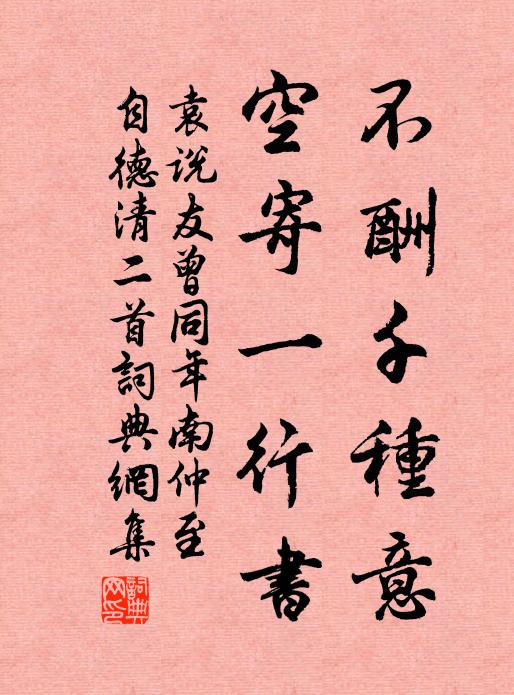 不酬千種意
空寄一行書
袁説友曾同年南仲至
自德清二首詞典網集
詞典
网印